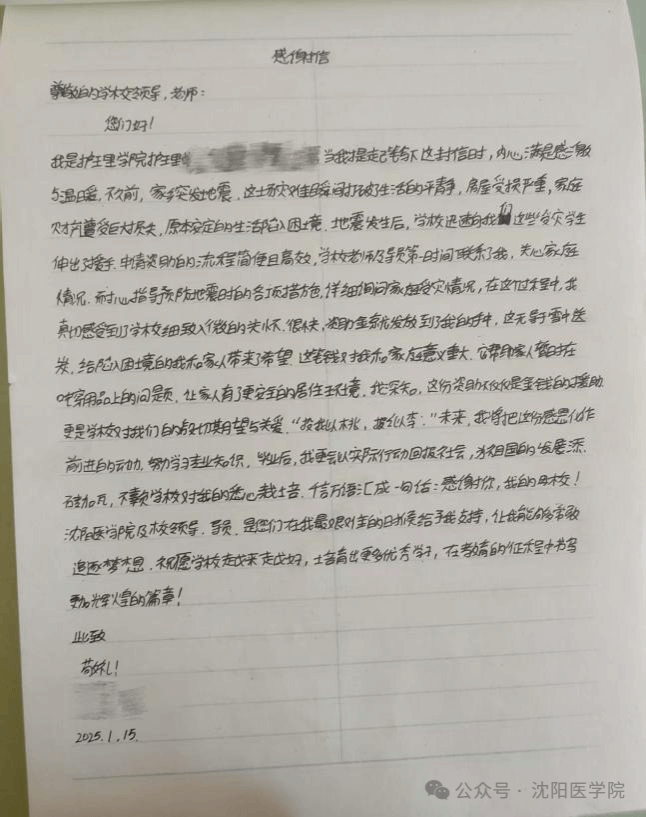 感谢信
尊敬的学校领导,老师:
您们好!
我是护理学院护理 当我提起笔写下这封信时,内心满是感激
与温暖。不久前,家乡突发地震,这场灾难瞬间打破了生活的平静,房屋受损严重,家庭
财产遭受巨大损失,原本安定的生活陷入困境。地震发生后,学校迅速向我们这些受灾学生
伸出援手。申请资助的流程简便且高效,学校老师及导员第一时间联系了我,关心家庭
情况。耐心指导预防地震时的各项措施,详细询问家庭受灾情况,在这过程中,我
真切感受到了学校细致入微的关怀。很快,资助金就发放到了我的手中,这无异于雪中送
炭,给陷入困境的我和家人带来了希望。这笔钱对我和家庭意义重大。它帮助家人暂时在
吃穿用品上的问题,让家人有了更安全的居住环境。我深知,这份资助不仅仅是金钱的援助
更是学校对我们的殷切期望与关爱。“投我以木桃,报之以李。”未来,我将把这份感恩化作
前进的动力,努力学习专业知识,毕业后,我更会以实际行动回报社会,为祖国的发展添
砖加瓦,不辜负学校对我的悉心栽培。千言万语汇成一句话:感谢你,我的母校!
沈阳医学院及校领导、导员,是您们在我最艰难的时候给予我支持,让我能够勇敢
追逐梦想。祝愿学校越来越好,培育出更多优秀学子,在教育的征程中书写
更加辉煌的篇章!
此致
敬礼!
2025.1.15.
公众号·沈阳医学院